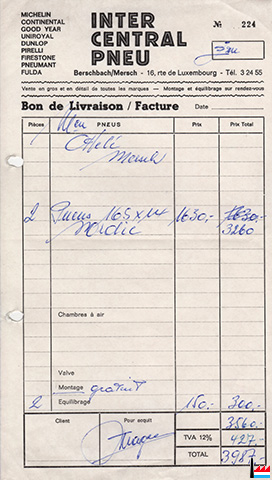 MICHELIN
CONTINENTAL
GOOD YEAR
UNIROYAL
DUNLOP
PIRELLI
FIRESTONE
PNEUMANT
FULDA
INTER
CENTRAL
PNEU
№ 224
Berschbach/Mersch - 16, rue de Luxembourg - Tél. 3 24 55
Vente en gros et en détail de toutes les marques — Montage et équilibrage sur rendez-vous
Bon de Livraison / Facture Date
Pièces PNEUS Prix Prix Total
Mersch
2 Pneus 165 x 14 1630,-
3260
Chambres à air
Valve
Montage gratuit
2 Equilibrage 150,- 300,-
Client Pour acquit 3560.-
TVA 12% 427.-
TOTAL 3987.-